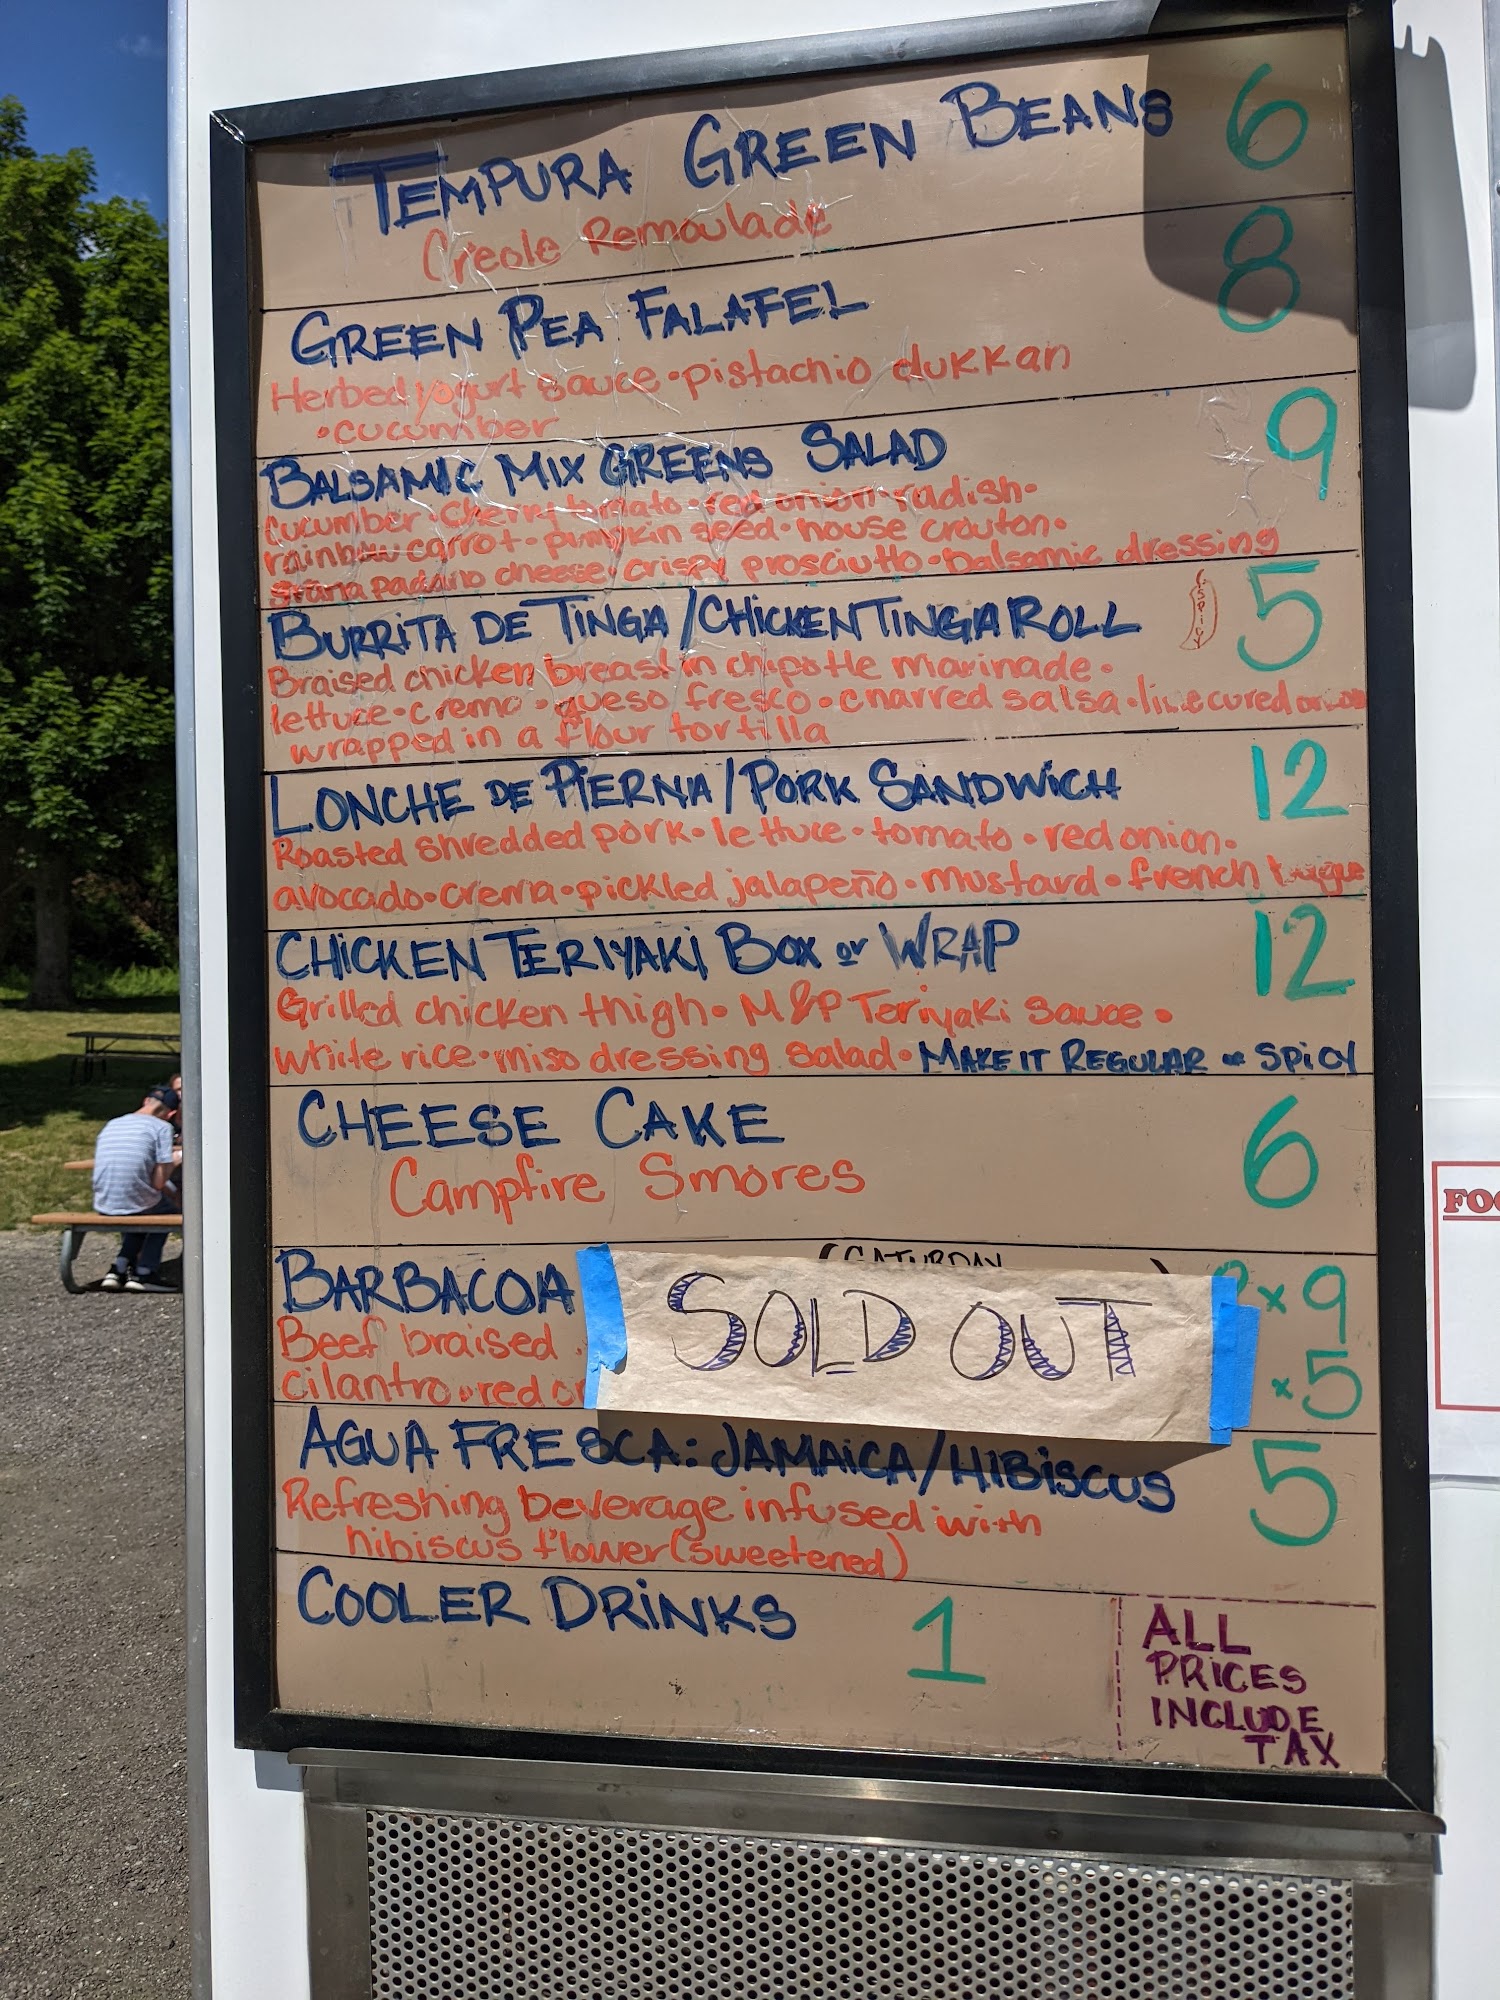 TEMPURA GREEN BEANS 6
Creole Remoulade
GREEN PEA FALAFEL 8
Herbed yogurt sauce • pistachio dukkan
• cucumber
BALSAMIC MIX GREENS SALAD 9
cucumber • cherry tomato • red onion • radish •
rainbow carrot • pumpkin seed • house crouton •
grana padano cheese • crispy prosciutto • balsamic dressing
BURRITA DE TINGA / CHICKEN TINGA ROLL SPICY 5
Braised chicken breast in chipotle marinade •
lettuce • crema • queso fresco • charred salsa • lime cured
wrapped in a flour tortilla
LONCHE DE PIERNA / PORK SANDWICH 12
Roasted shredded pork • lettuce • tomato • red onion •
avocado • crema • pickled jalapeño • mustard • french
CHICKEN TERIYAKI BOX or WRAP 12
Grilled chicken thigh • M&P Teriyaki Sauce •
white rice • miso dressing salad • MAKE IT REGULAR or SPICY
CHEESE CAKE 6
Campfire Smores
BARBACOA (SATURDAY ) x 9
SOLD OUT
Beef braised
cilantro • red x 5
AGUA FRESCA: JAMAICA / HIBISCUS 5
Refreshing beverage infused with
hibiscus flower (sweetened)
COOLER DRINKS 1
ALL
PRICES
INCLUDE
TAX